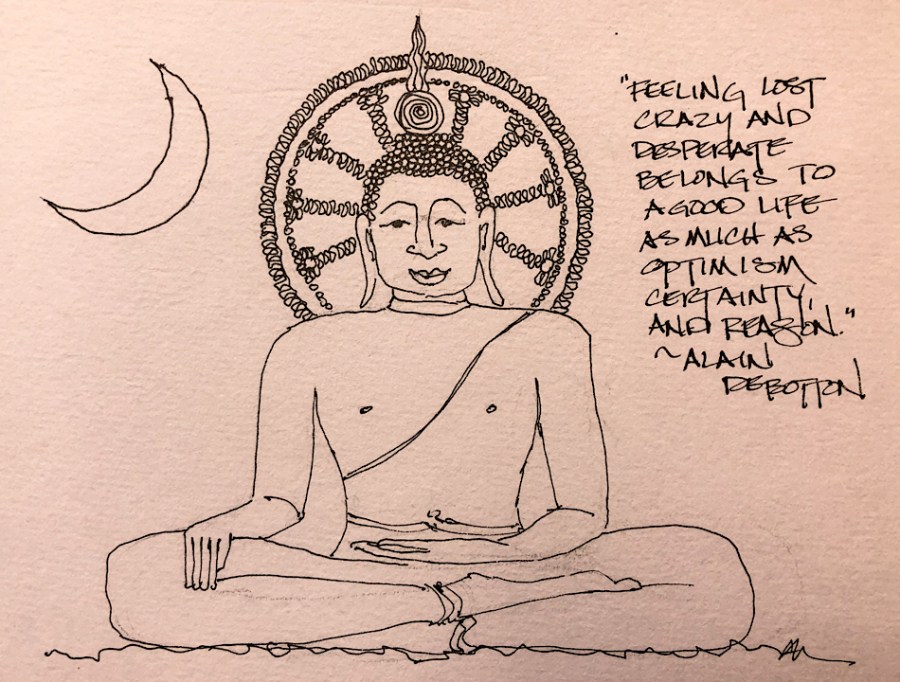 "FEELING LOST
CRAZY AND
DESPERATE
BELONGS TO
A GOOD LIFE
AS MUCH AS
OPTIMISM
CERTAINTY,
AND REASON."
~ALAIN
DEBOTTON